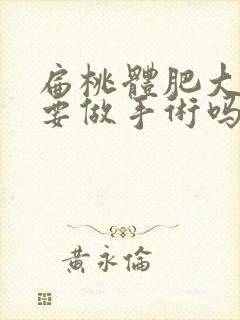 扁桃體肥大
要做手術嗎
黃永倫